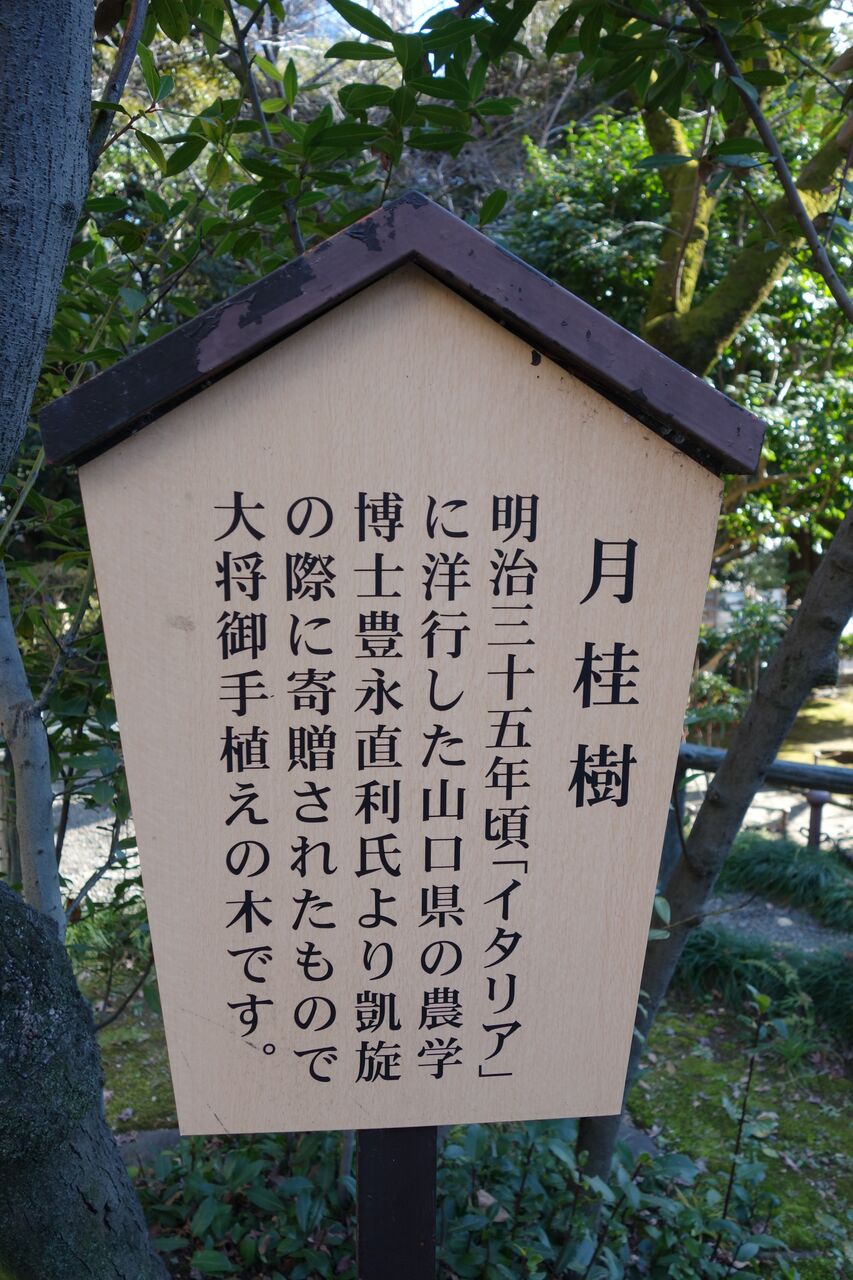 月桂樹
明治三十五年頃「イタリア」
に洋行した山口県の農学
博士豊永直利氏より凱旋
の際に寄贈されたもので
大将御手植えの木です。